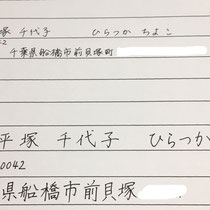 塚 千代子 ひらつか ちよこ
千葉県船橋市前貝塚町
平塚 千代子 ひらつか
0042
県船橋市前貝塚